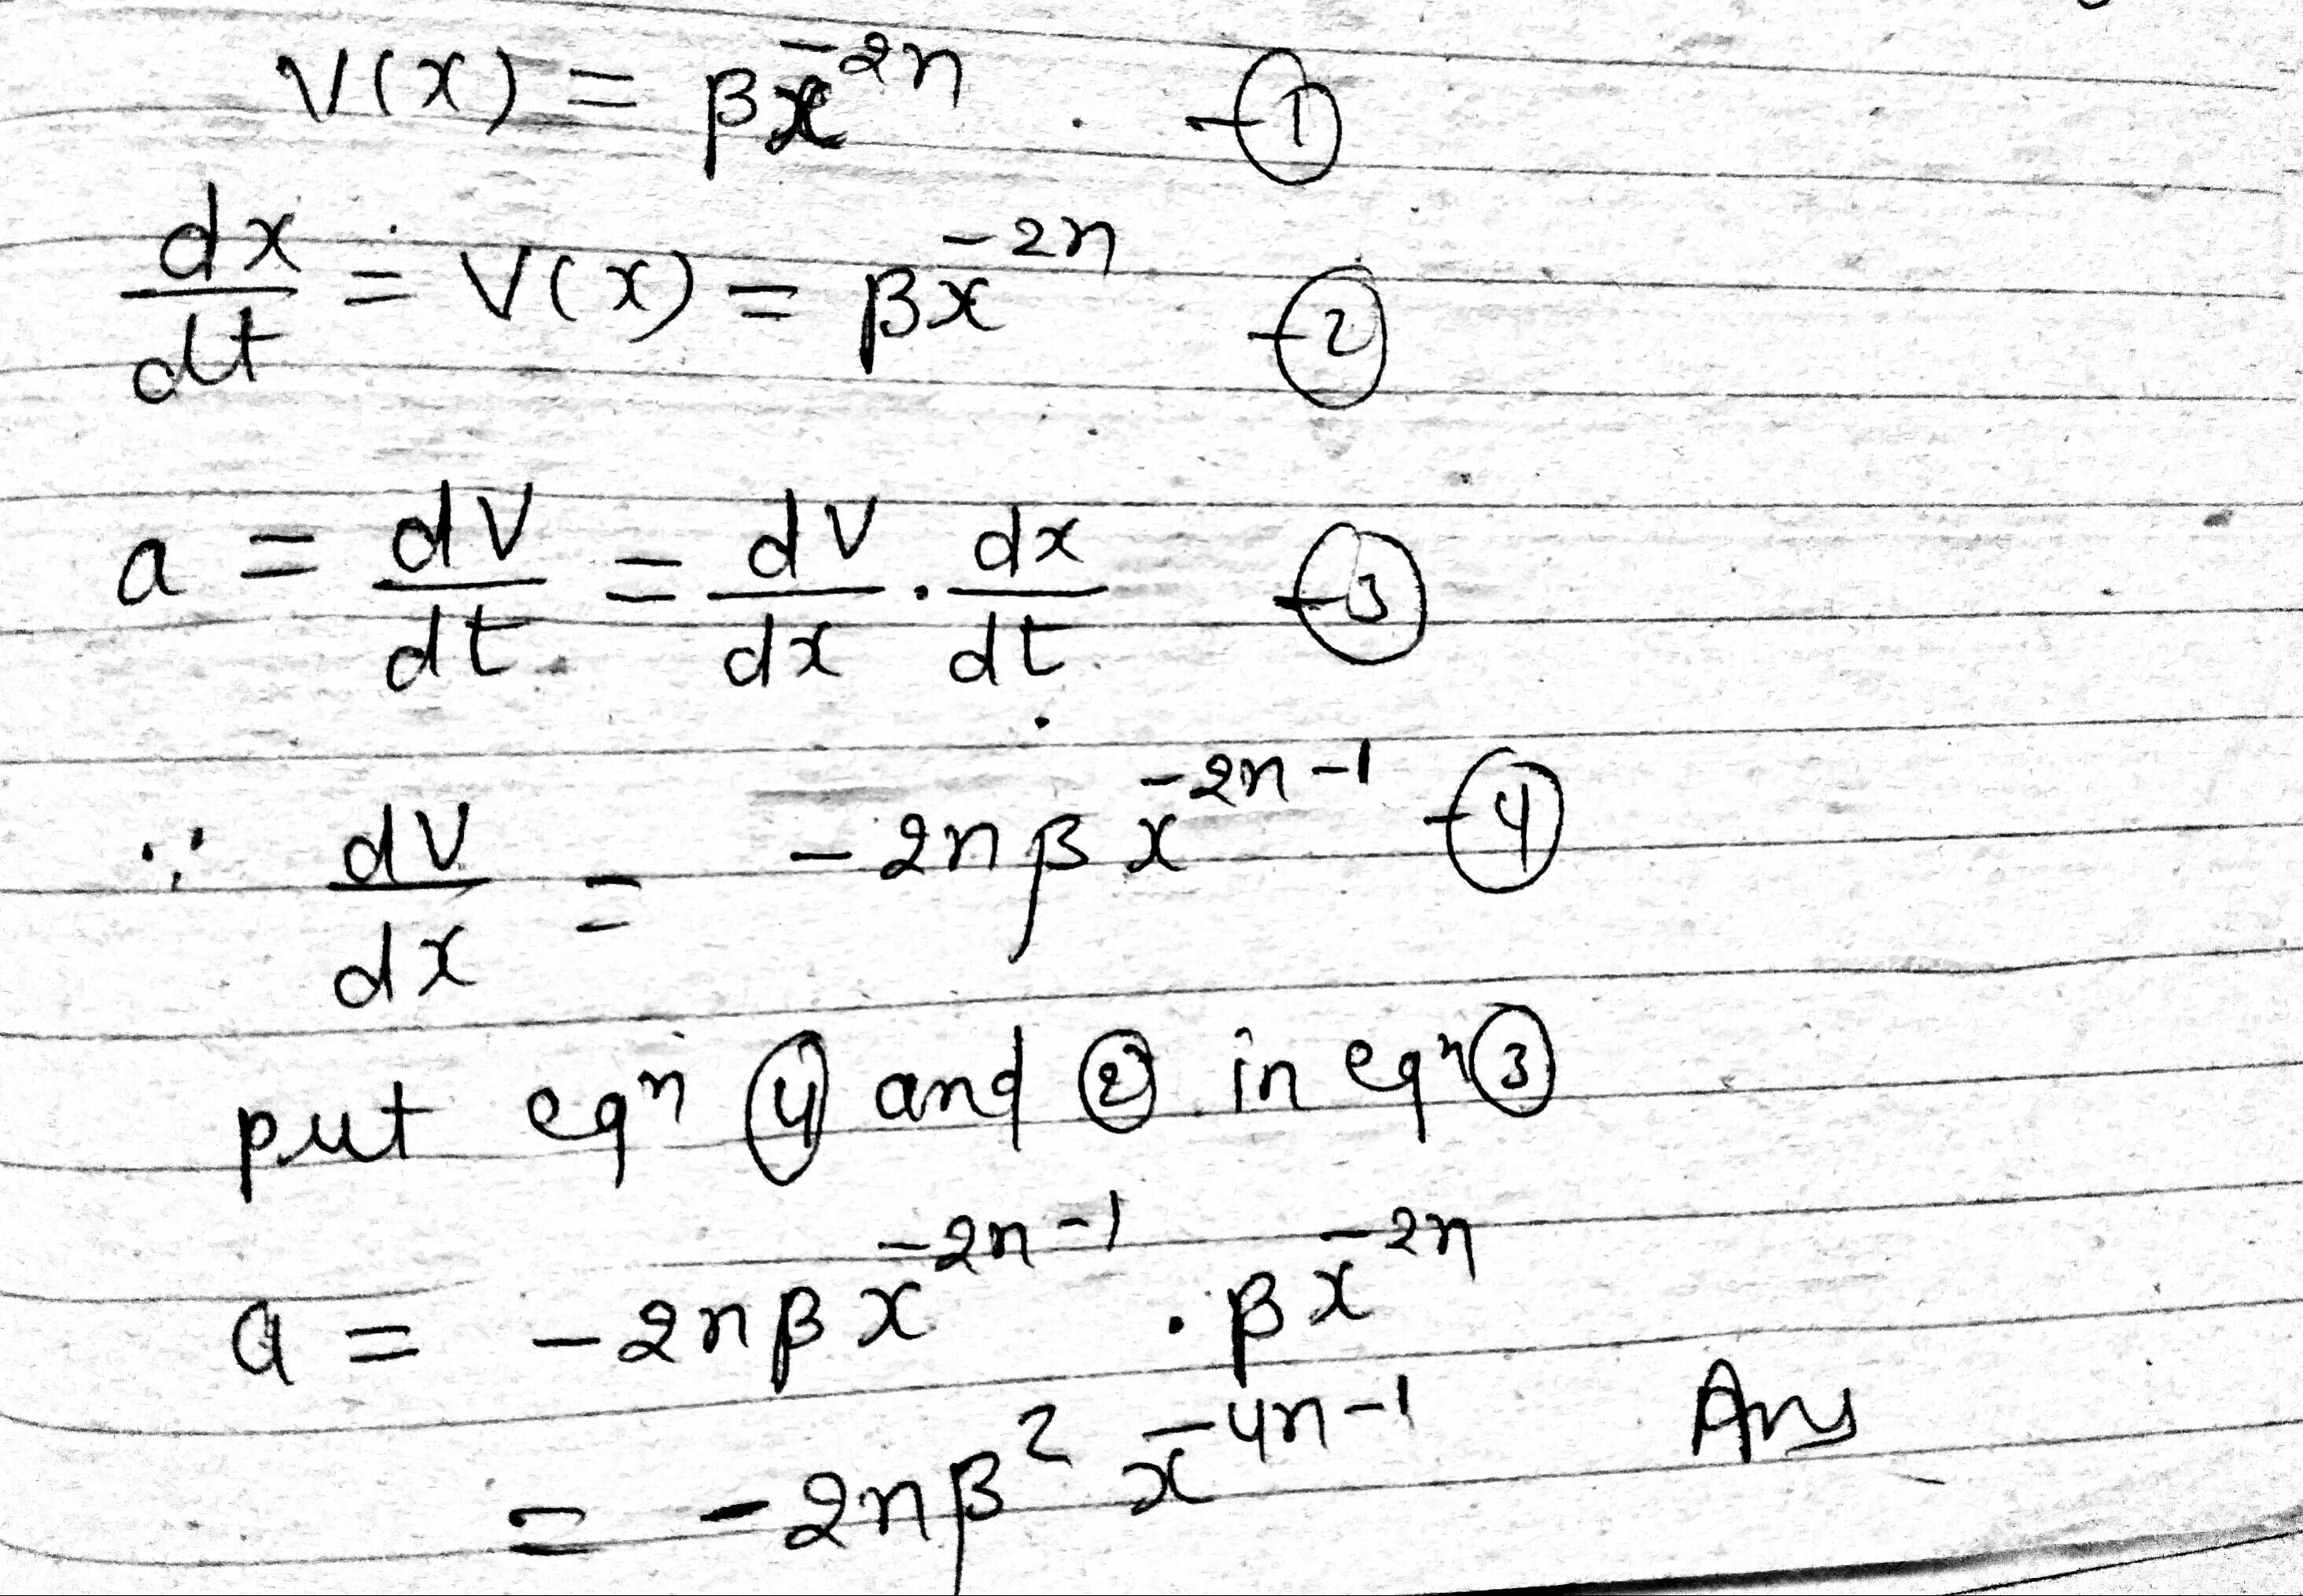 V(x) = βx^{-2n} - ①
dx/dt = V(x) = βx^{-2n} - ②
a = dV/dt = dV/dx · dx/dt - ③
∵ dV/dx = -2nβ x^{-2n-1} - ④
put eqⁿ ④ and ② in eqⁿ ③
a = -2nβx^{-2n-1} · βx^{-2n}
= -2nβ² x^{-4n-1} Ans